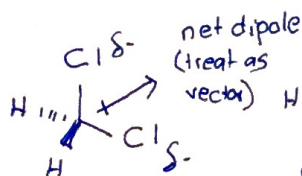 net dipole
Cl δ- (treat as
vector) H
H
Cl δ-
H